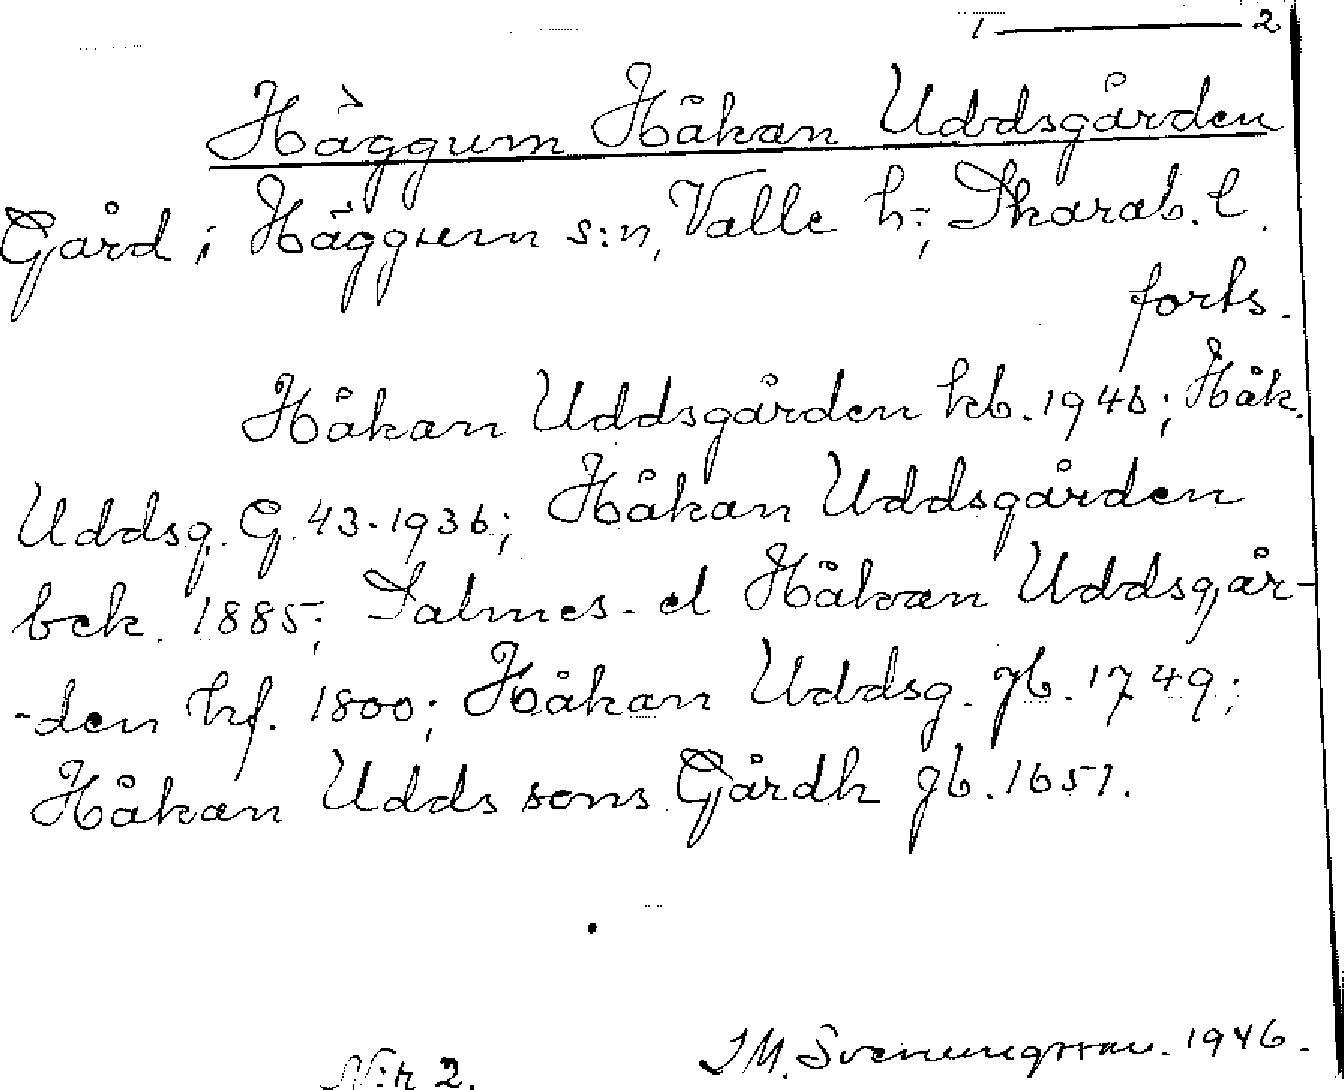 1 ——— 2
Häggum Håkan Uddsgården
Gård i Häggum s:n, Valle h.; Skarab. l.
forts.
Håkan Uddsgården kb. 1946; Håk.
Uddsg. G. 43-1936; Håkan Uddsgården
bek. 1885; Salmes- el Håkan Uddsgår-
-den hf. 1800; Håkan Uddsg. jb. 1749;
Håkan Udds sons Gårdh jb. 1651.
N:r 2.
Svenungsson. 1946.